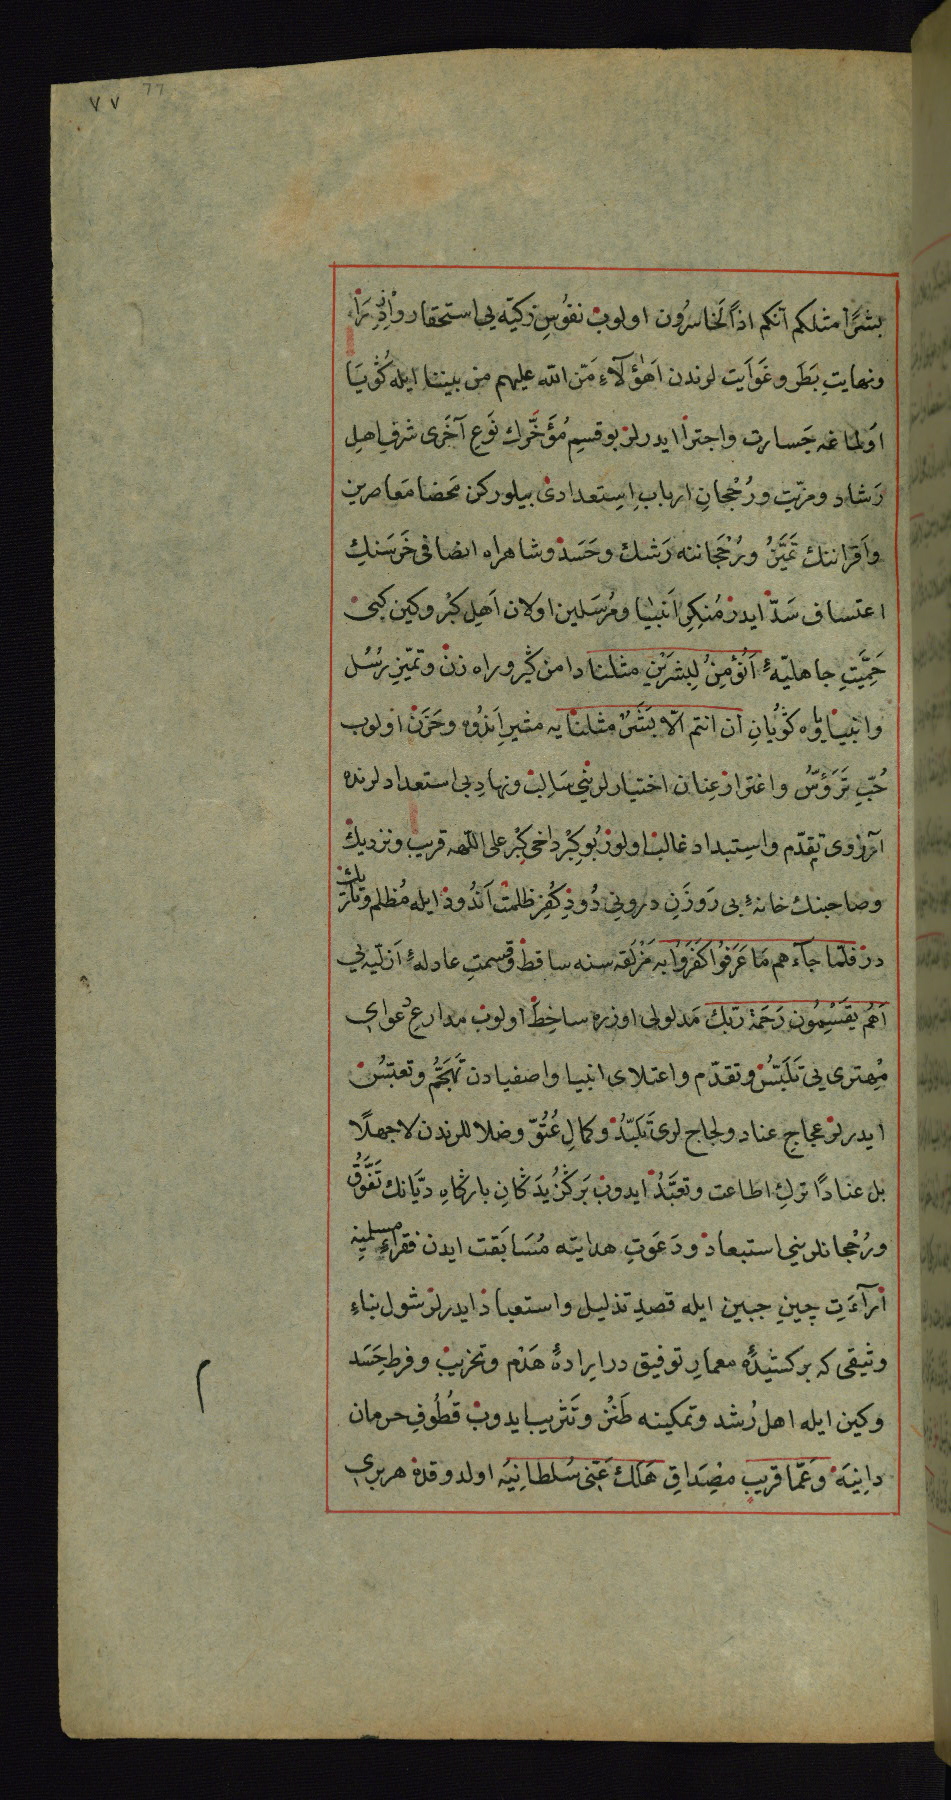 ٧٧ 77
بشرًا مثلكم انكم اذًا لخاسرُون اولوب نفوُسِ زكيّه يى استحقار و اِزدِرَا
ونهايتِ بَطَر و غَوَايت لرندن اَهٰؤُلآءِ مَنّ الله عليهم من بيننا ايله كُويَا
اولماغه جَسارت واجترا ايدرلر بو قسمِ مُؤَخّرك نَوعِ آخَرى شرفِ اهلِ
رَشاد ومزيّت ورُجْحانِ اربابِ اِستعدادى بيلوركن مَحضا مَعاصرين
واَقراننك تَميّزُ ورُجْحَاننه رَشك وحَسَد وشاهراه انصافى خَرسَنكِ
اعتساف سَدّ ايدر مُنكِرِ اَنبيَا ومُرسَلين اولان اَهلِ كبْر وكين كبى
حَمِيَّتِ جاهليّهءِ اَنُؤمِنُ لِبشرَيْنِ مثلنا دامن كير و راه زن وتميّزِ رسُل
وانبيَا ياوه كويُانِ ان انتم الّا بَشَرٌ مثلنا يه مثيرِ اَندُوه وحَزَن اولوب
حُبِّ تَرَؤّسُ واغترار عِنان اختيارلرينى سَالِب ونهادِ بى استعدادلرنده
آرزوى تقدّم واِستبداد غالب اولور بُو كِبْر داخى كِبْر على اللّهه قريب ونزديك
وصاحبنك خانهءِ بى رَوزَنِ درونى دُودِ كُفرِ ظلمت اَندُود ايله مُظلم وتاريك
در فلمّا جآءهم مَا عَرَفوُا كَفَرَوُا به مَزْلَقه سنه ساقط وقسمتِ عادلهءِ اَزليّه يى
اَهُمْ يقسِمُون رَحَمةَ رَبّك مَدلولى اوزره ساخِط اولوب مدارعِ دعواىِ
مِهترى يى تَلَبّسُ وتقدّم واعتلاى انبيا واصفيادن تَهَجّمُ وتعبّسُ
ايدرلر عجاجِ عناد ولجاج لرى تَكبّدُ وكمالِ عُتُوّ وضلاللرندن لا جهلًا
بل عنادًا تركِ اطاعت وتعبّد ايدوب بَركزُيدَكانِ باركاهِ ديّانك تَفَوّقُ
ورُجْحانلرينى استبعاد ودَعَوتِ هدايته مُسَابَقت ايدن فقراءِ مسلمينه
اراءَتِ چينِ جبين ايله قصدِ تذليل واستعباد ايدرلر شول بناءِ
وثيقى كه بركشيدهءِ معمارِ توفيق در ايرادهءِ هَدْم وتخريب وفرط حَسَد
وكين ايله اهل رُشد وتمكينه طَنْز وتَثريب ايدوب قُطُوفِ حرمان
دانيَه وَعَمّا قريب مصِدَاقِ هَلَكَ عَنّى سُلطانِيَه اولدوقده هر برى
م